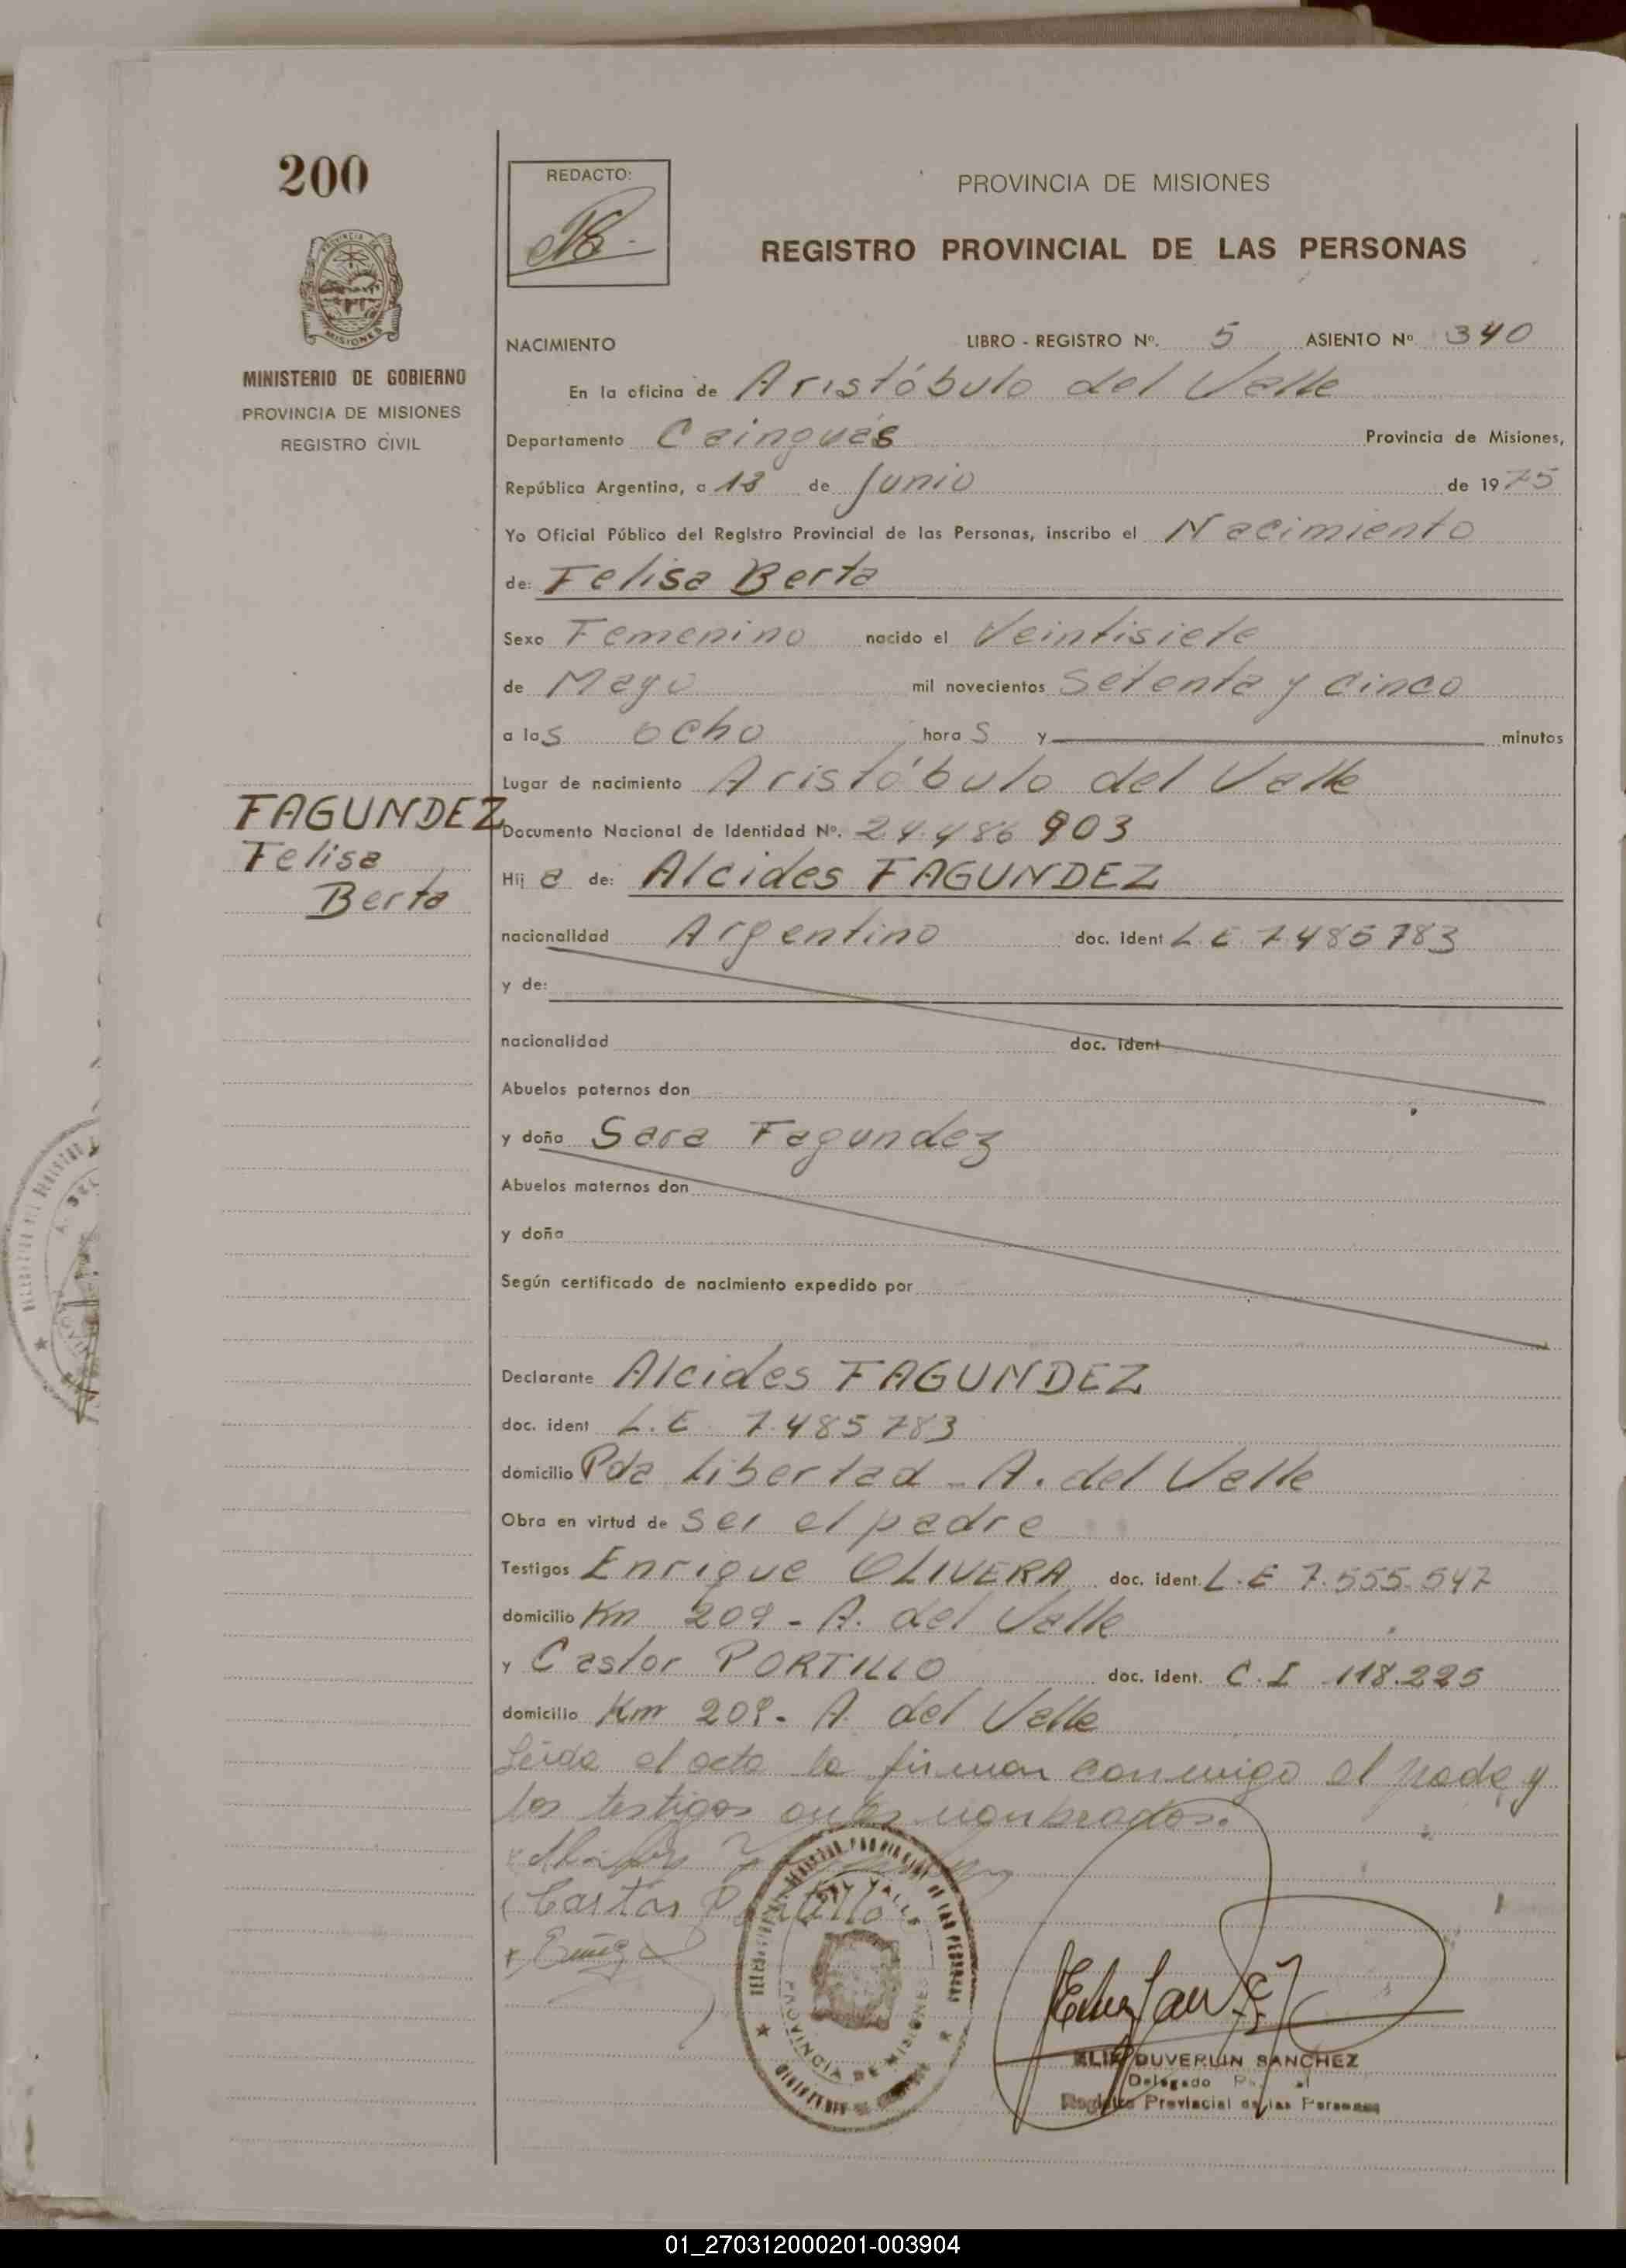 200
REDACTO:
PROVINCIA DE MISIONES
REGISTRO PROVINCIAL DE LAS PERSONAS
PROVINCIA DE
MISIONES
MINISTERIO DE GOBIERNO
PROVINCIA DE MISIONES
REGISTRO CIVIL
NACIMIENTO LIBRO - REGISTRO Nº. 5 ASIENTO Nº 340
En la oficina de Aristóbulo del Valle
Departamento Cainguás Provincia de Misiones,
República Argentina, a 13 de Junio de 1975
Yo Oficial Público del Registro Provincial de las Personas, inscribo el Nacimiento
de: Felisa Berta
Sexo Femenino nacido el Veintisiete
de Mayo mil novecientos Setenta y cinco
a las ocho horas y minutos
Lugar de nacimiento Aristóbulo del Valle
FAGUNDEZ
Felisa
Berta
Documento Nacional de Identidad Nº. 24.486 903
Hija de: Alcides FAGUNDEZ
nacionalidad Argentino doc. ident L.E 7.485 783
y de:
nacionalidad doc. ident
Abuelos paternos don
y doña Sara Fagundez
Abuelos maternos don
y doña
Según certificado de nacimiento expedido por
Declarante Alcides FAGUNDEZ
doc. ident L.E 7.485 783
domicilio Pda Libertad - A. del Valle
Obra en virtud de ser el padre
Testigos Enrique OLIVERA doc. ident. L.E 7.555.547
domicilio Km 209 - A. del Valle
y Castor PORTILLO doc. ident. C.I 118.225
domicilio Km 209 - A. del Valle
Leída el acta la firman conmigo el padre y
los testigos antes nombrados.
Castor Portillo
PROVINCIA DE MISIONES
DUVERLIN SANCHEZ
Delegado
Registro Provincial de las Personas
01_270312000201-003904